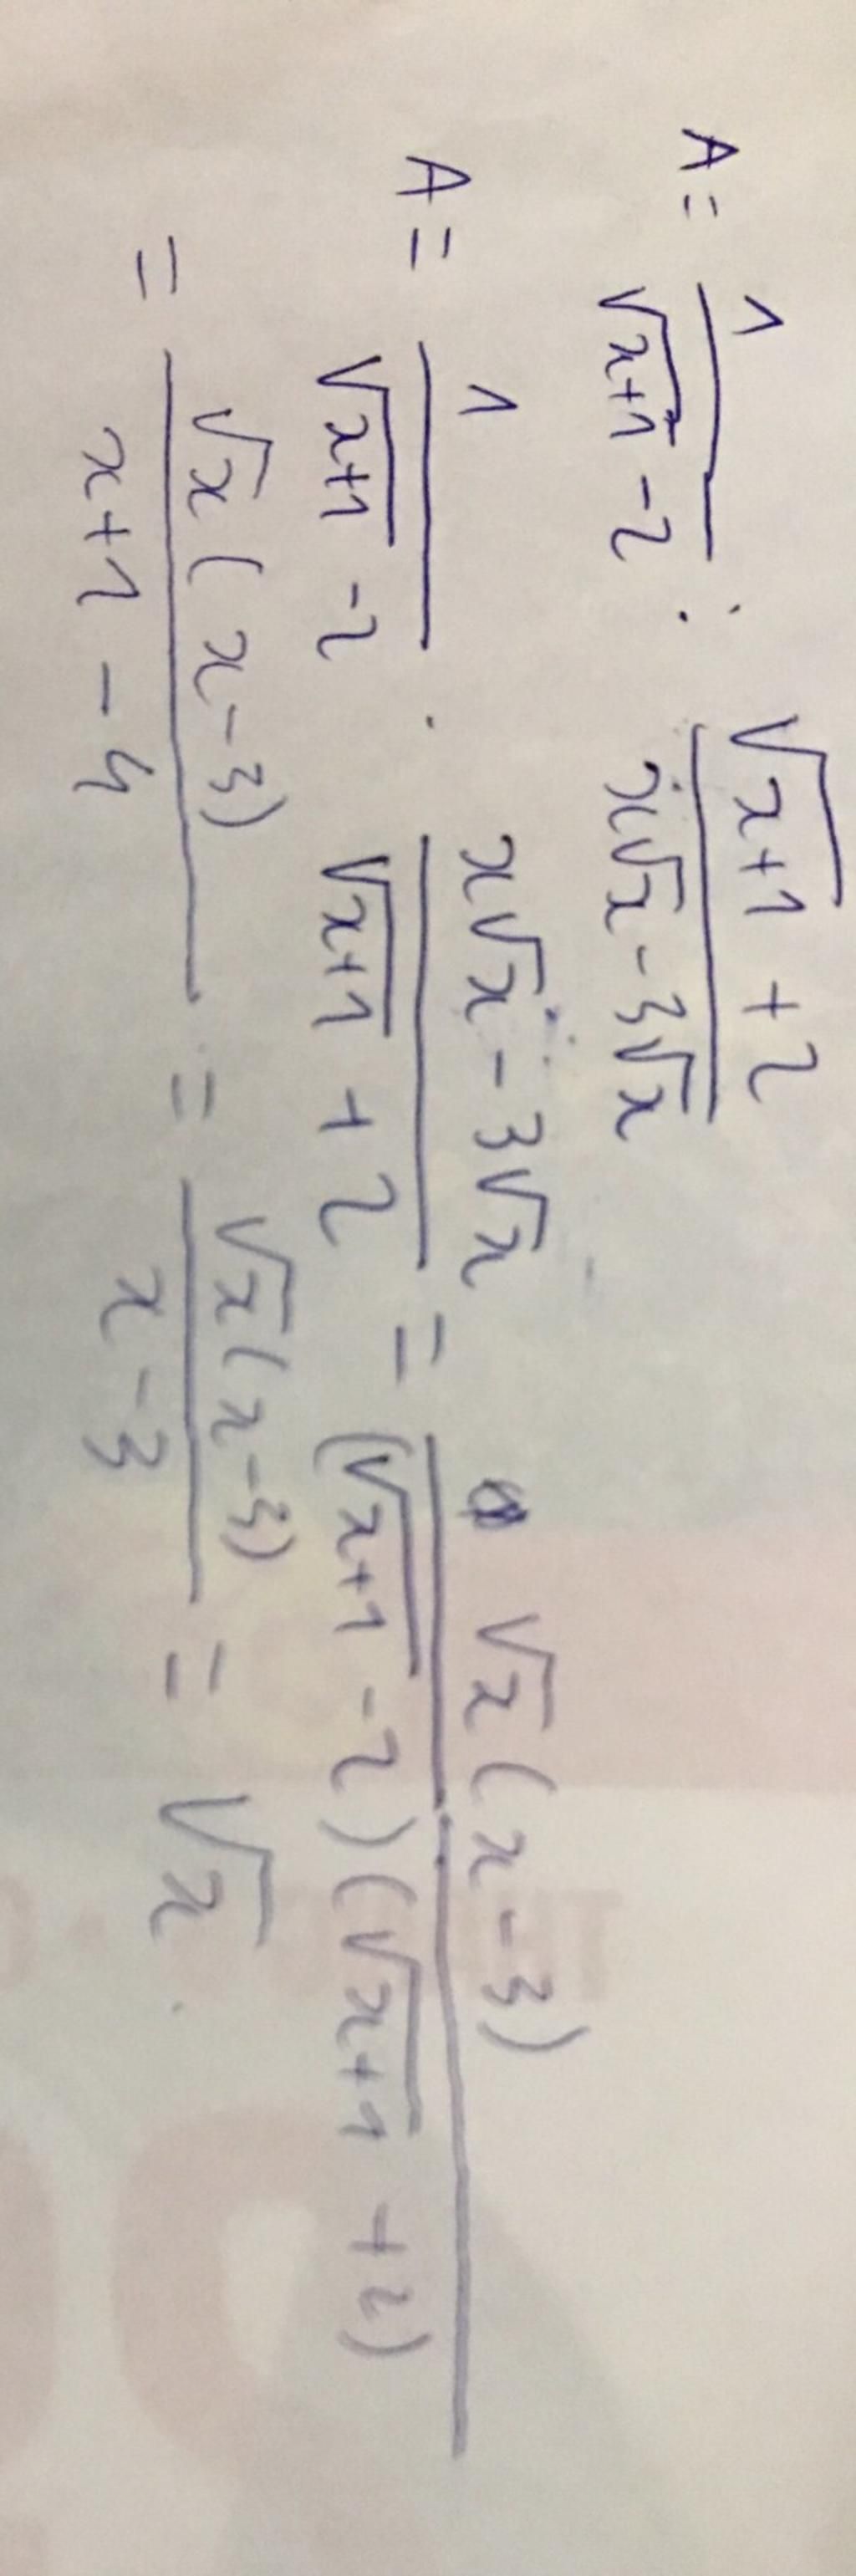 A = 1/(√(x+1) - 2) : (√(x+1) + 2)/(x√x - 3√x)
A = 1/(√(x+1) - 2) . (x√x - 3√x)/(√(x+1) + 2) = √x(x - 3)/((√(x+1) - 2)(√(x+1) + 2))
= √x(x - 3)/(x + 1 - 4) = √x(x - 3)/(x - 3) = √x